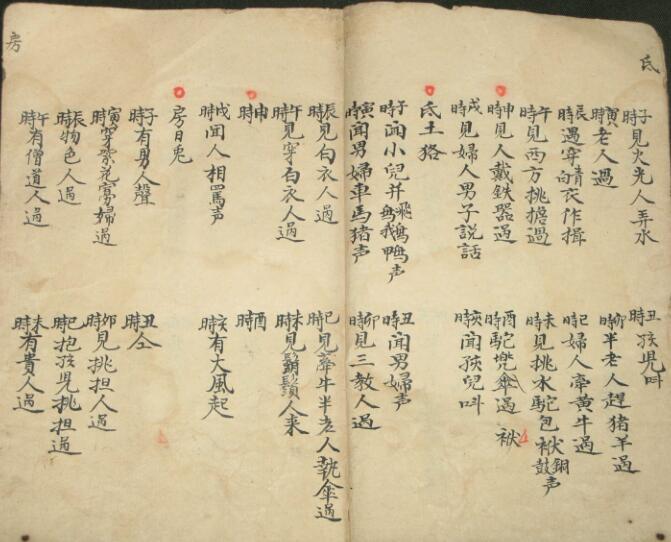 氐
子時見火光人弄水
丑時孩兒叫
寅時老人過
卯時半老人趕猪羊過
辰時遇穿青衣作揖
巳時婦人牽黃牛過
午時見西方挑擔過
未時見挑水駝包袱銅鼓声
申時見人戴鉄器過
酉時駝兠傘過 袱
戌時見婦人男子說話
亥時聞孩兒叫
氐土狢
子時聞小兒并飛鵝鴨声
丑時聞男婦声
寅時聞男婦車馬猪声
卯時見三教人過
辰時見白衣人過
巳時見牽牛半老人執傘過
午時見穿白衣人過
未時見鬍鬚人来
申時
酉時
戌時聞人相罵声
亥時有大風起
房日兎
子時有男人聲
丑時仝
寅時穿紫花寡婦過
卯時見挑担人過
辰時物色人過
巳時抱孩兒挑担過
午時有僧道人過
未時有貴人過
房